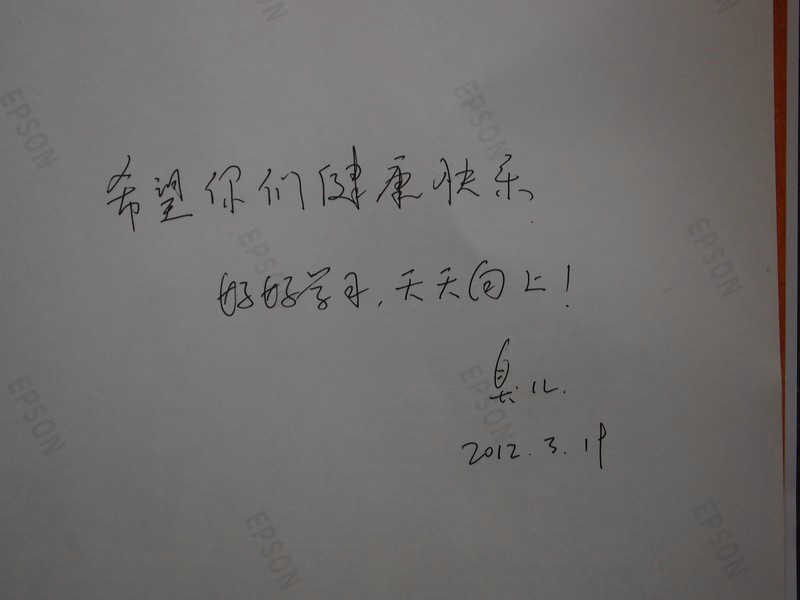 希望你们健康快乐
好好学习,天天向上!
2012.3.19
EPSON
EPSON
EPSON
EPSON
EPSON
EPSON
EPSON
EPSON